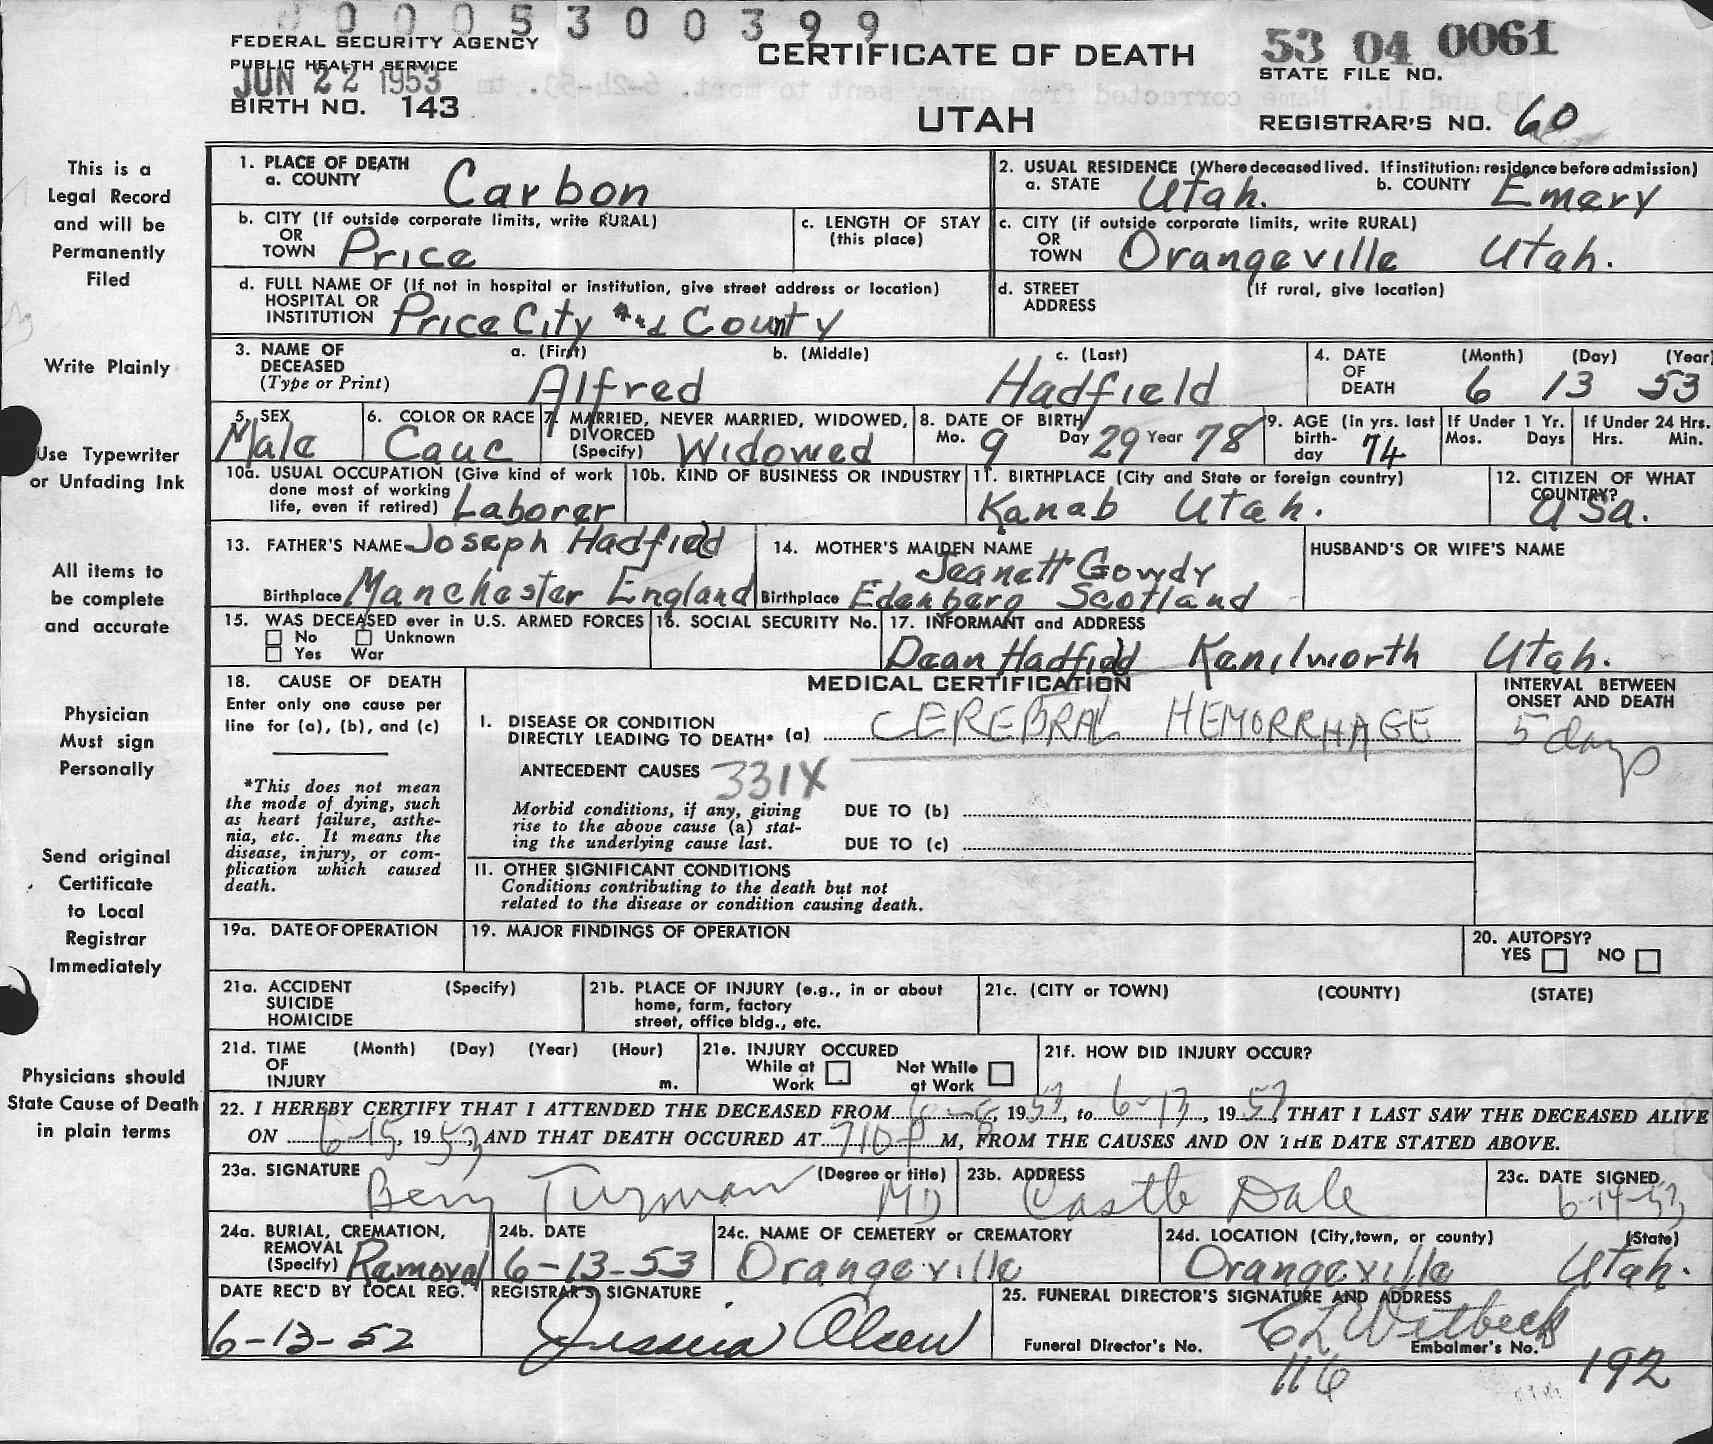 00005300399
FEDERAL SECURITY AGENCY
PUBLIC HEALTH SERVICE
JUN 22 1953
BIRTH NO. 143
CERTIFICATE OF DEATH
UTAH
53 04 0061
STATE FILE NO.
REGISTRAR'S NO. 60
This is a
Legal Record
and will be
Permanently
Filed
Write Plainly
Use Typewriter
or Unfading Ink
All items to
be complete
and accurate
Physician
Must sign
Personally
Send original
Certificate
to Local
Registrar
Immediately
Physicians should
State Cause of Death
in plain terms
1. PLACE OF DEATH
a. COUNTY Carbon
2. USUAL RESIDENCE (Where deceased lived. If institution: residence before admission)
a. STATE Utah. b. COUNTY Emery
b. CITY (If outside corporate limits, write RURAL)
OR
TOWN Price
c. LENGTH OF STAY
(this place)
c. CITY (if outside corporate limits, write RURAL)
OR
TOWN Orangeville Utah.
d. FULL NAME OF (If not in hospital or institution, give street address or location)
HOSPITAL OR
INSTITUTION Price City And County
d. STREET (If rural, give location)
ADDRESS
3. NAME OF
DECEASED
(Type or Print)
a. (First) b. (Middle) c. (Last)
Alfred Hadfield
4. DATE
OF
DEATH
(Month) (Day) (Year)
6 13 53
5. SEX
Male
6. COLOR OR RACE
Cauc
7. MARRIED, NEVER MARRIED, WIDOWED,
DIVORCED
(Specify) Widowed
8. DATE OF BIRTH
Mo. 9 Day 29 Year 78
9. AGE (in yrs. last
birth-
day 74
If Under 1 Yr.
Mos. Days
If Under 24 Hrs.
Hrs. Min.
10a. USUAL OCCUPATION (Give kind of work
done most of working
life, even if retired) Laborer
10b. KIND OF BUSINESS OR INDUSTRY
11. BIRTHPLACE (City and State or foreign country)
Kanab Utah.
12. CITIZEN OF WHAT
COUNTRY?
USa.
13. FATHER'S NAME Joseph Hadfield
Birthplace Manchester England
14. MOTHER'S MAIDEN NAME
Jeanett Gowdy
Birthplace Edenberg Scotland
HUSBAND'S OR WIFE'S NAME
15. WAS DECEASED ever in U.S. ARMED FORCES
No Unknown
Yes War
16. SOCIAL SECURITY No.
17. INFORMANT and ADDRESS
Dean Hadfield Kenilworth Utah.
18. CAUSE OF DEATH
Enter only one cause per
line for (a), (b), and (c)
*This does not mean
the mode of dying, such
as heart failure, asthe-
nia, etc. It means the
disease, injury, or com-
plication which caused
death.
MEDICAL CERTIFICATION
I. DISEASE OR CONDITION
DIRECTLY LEADING TO DEATH* (a) CEREBRAL HEMORRHAGE
ANTECEDENT CAUSES 331X
Morbid conditions, if any, giving
rise to the above cause (a) stat-
ing the underlying cause last.
DUE TO (b)
DUE TO (c)
II. OTHER SIGNIFICANT CONDITIONS
Conditions contributing to the death but not
related to the disease or condition causing death.
INTERVAL BETWEEN
ONSET AND DEATH
5 days
19a. DATE OF OPERATION
19. MAJOR FINDINGS OF OPERATION
20. AUTOPSY?
YES NO
21a. ACCIDENT (Specify)
SUICIDE
HOMICIDE
21b. PLACE OF INJURY (e.g., in or about
home, farm, factory
street, office bldg., etc.
21c. (CITY or TOWN) (COUNTY) (STATE)
21d. TIME (Month) (Day) (Year) (Hour)
OF
INJURY m.
21e. INJURY OCCURED
While at Not While
Work at Work
21f. HOW DID INJURY OCCUR?
22. I HEREBY CERTIFY THAT I ATTENDED THE DECEASED FROM 1953, to 6-13, 1953, THAT I LAST SAW THE DECEASED ALIVE
ON 1953, AND THAT DEATH OCCURED AT 710 P M, FROM THE CAUSES AND ON THE DATE STATED ABOVE.
23a. SIGNATURE (Degree or title)
Turman MD
23b. ADDRESS
Castle Dale
23c. DATE SIGNED
6-14-53
24a. BURIAL, CREMATION,
REMOVAL
(Specify) Removal
24b. DATE
6-13-53
24c. NAME OF CEMETERY or CREMATORY
Orangeville
24d. LOCATION (City, town, or county) (State)
Orangeville Utah.
DATE REC'D BY LOCAL REG.
6-13-52
REGISTRAR'S SIGNATURE
Olsen
25. FUNERAL DIRECTOR'S SIGNATURE AND ADDRESS
Funeral Director's No. 116
Embalmer's No. 192